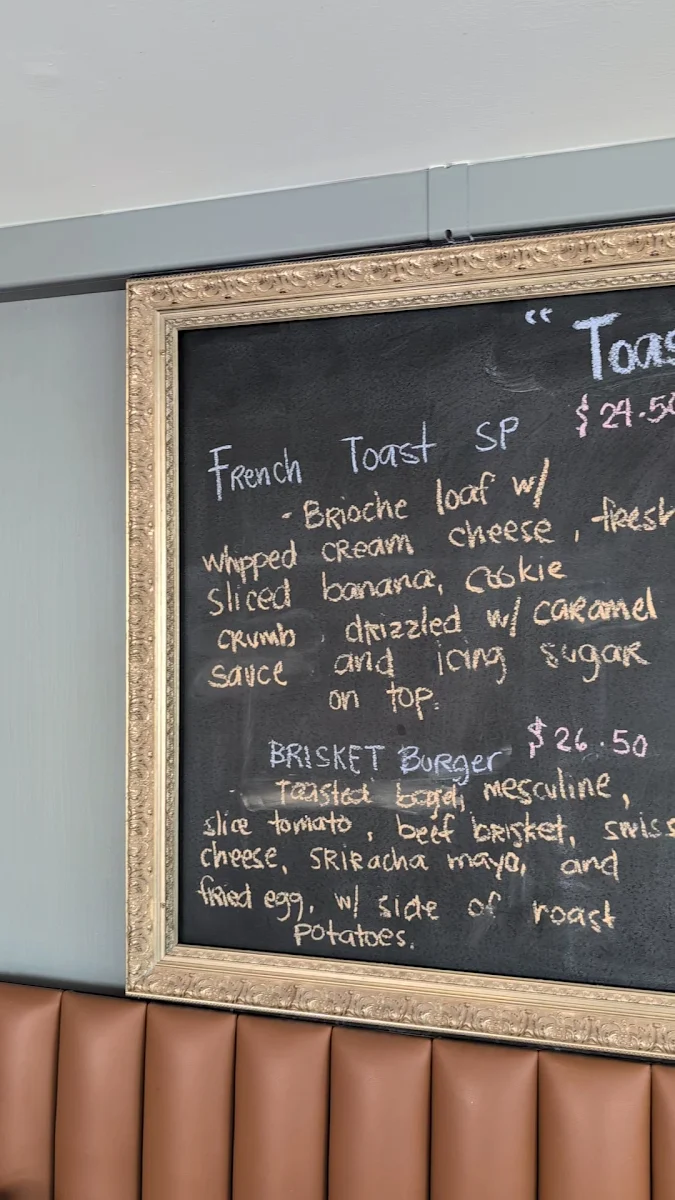 “ Toas
$24.50
French Toast SP
- Brioche loaf w/
whipped cream cheese, fresh
sliced banana, cookie
crumb, drizzled w/ caramel
sauce and icing sugar
on top.
$26.50
BRISKET Burger
- Toasted bagel, mesculine,
slice tomato, beef brisket, swiss
cheese, SRiRacha mayo, and
fried egg, w/ side of roast
potatoes.